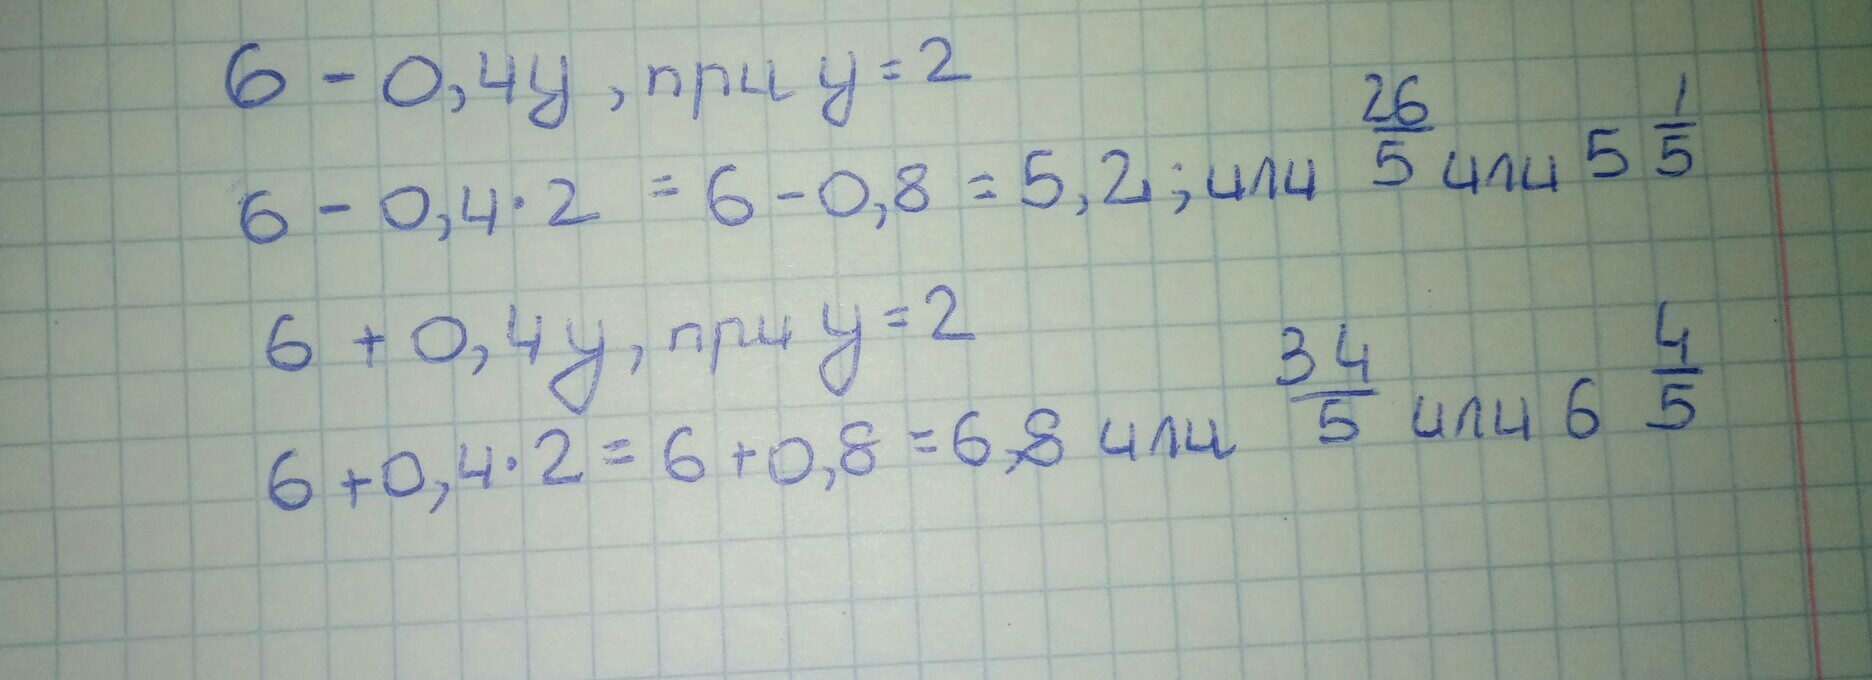 6 - 0,4y, при y = 2
6 - 0,4·2 = 6 - 0,8 = 5,2; или 26/5 или 5 1/5
6 + 0,4y, при y = 2
6 + 0,4·2 = 6 + 0,8 = 6,8 или 34/5 или 6 4/5